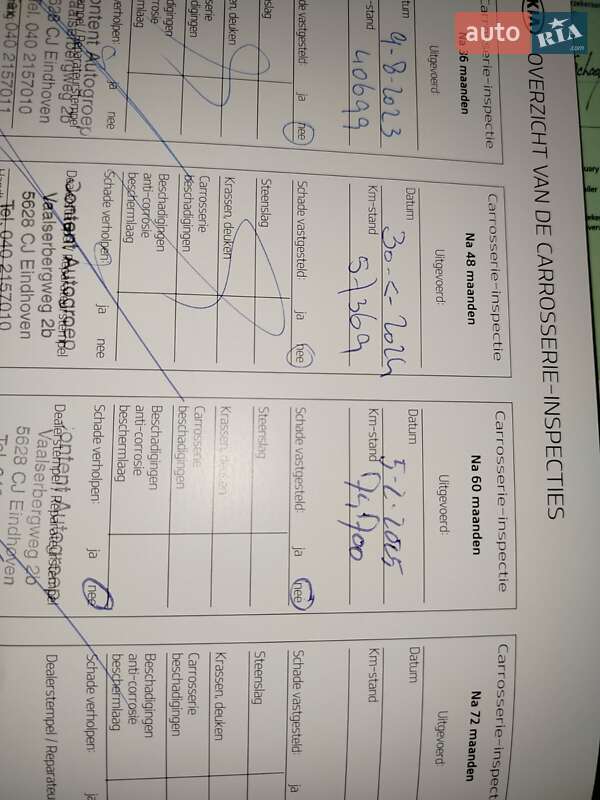 KIA OVERZICHT VAN DE CARROSSERIE-INSPECTIES
Carrosserie-inspectie
Na 36 maanden
Uitgevoerd:
Datum 9-8-2023
Km-stand 40699
Schade vastgesteld: ja nee
Steenslag
Krassen, deuken
Carrosserie
beschadigingen
Beschadigingen
anti-corrosie
beschermlaag
verholpen: ja nee
Reparateurstempel
Content Autogroep
Vaalserbergweg 2b
5628 CJ Eindhoven
Tel. 040 2157010
040 2157011
Carrosserie-inspectie
Na 48 maanden
Uitgevoerd:
Datum
Km-stand 57369
Schade vastgesteld: ja nee
Steenslag
Krassen, deuken
Carrosserie
beschadigingen
Beschadigingen
anti-corrosie
beschermlaag
Schade verholpen: ja nee
Content Autogroep
Vaalserbergweg 2b
5628 CJ Eindhoven
Tel. 040 2157010
Carrosserie-inspectie
Na 60 maanden
Uitgevoerd:
Datum 5-2-2025
Km-stand
Schade vastgesteld: ja nee
Steenslag
Krassen, deuken
Carrosserie
beschadigingen
Beschadigingen
anti-corrosie
beschermlaag
Schade verholpen: ja nee
Dealerstempel / Reparateurstempel
ontent Autogroep
Vaalserbergweg 2b
5628 CJ Eindhoven
Tel.
Carrosserie-inspectie
Na 72 maanden
Uitgevoerd:
Datum
Km-stand
Schade vastgesteld: ja
Steenslag
Krassen, deuken
Carrosserie
beschadigingen
Beschadigingen
anti-corrosie
beschermlaag
Schade verholpen: ja
Dealerstempel / Reparateu
auto RIA.com